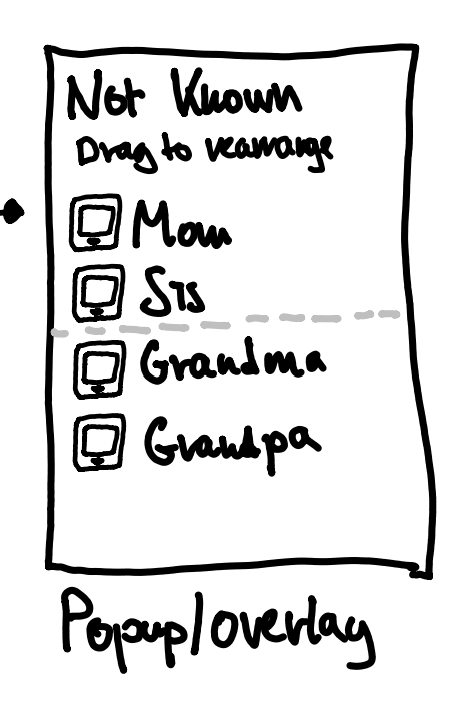 Not Known
Drag to rearrange
Mom
Sis
Grandma
Grandpa
Popup/overlay